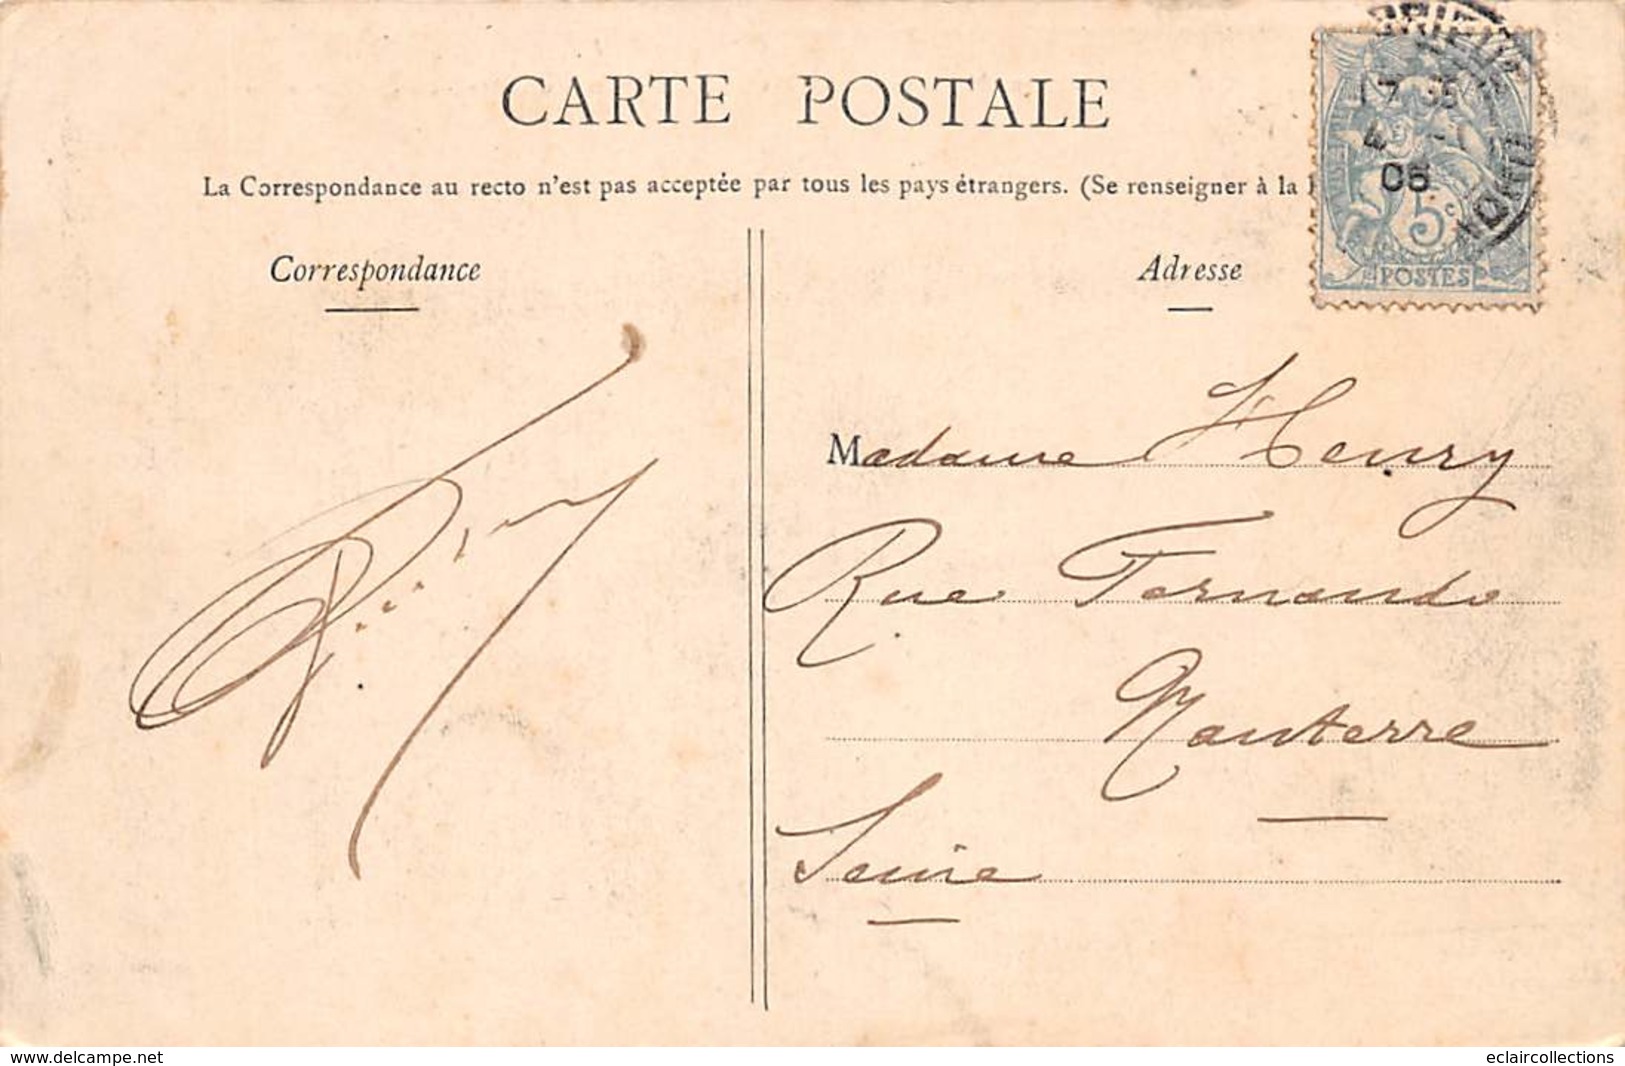 CARTE POSTALE
La Correspondance au recto n'est pas acceptée par tous les pays étrangers. (Se renseigner à la
Correspondance
Adresse
5c
POSTES
06
Madame Henry
Rue Fernande
Nanterre
Seine
www.delcampe.net
eclaircollections